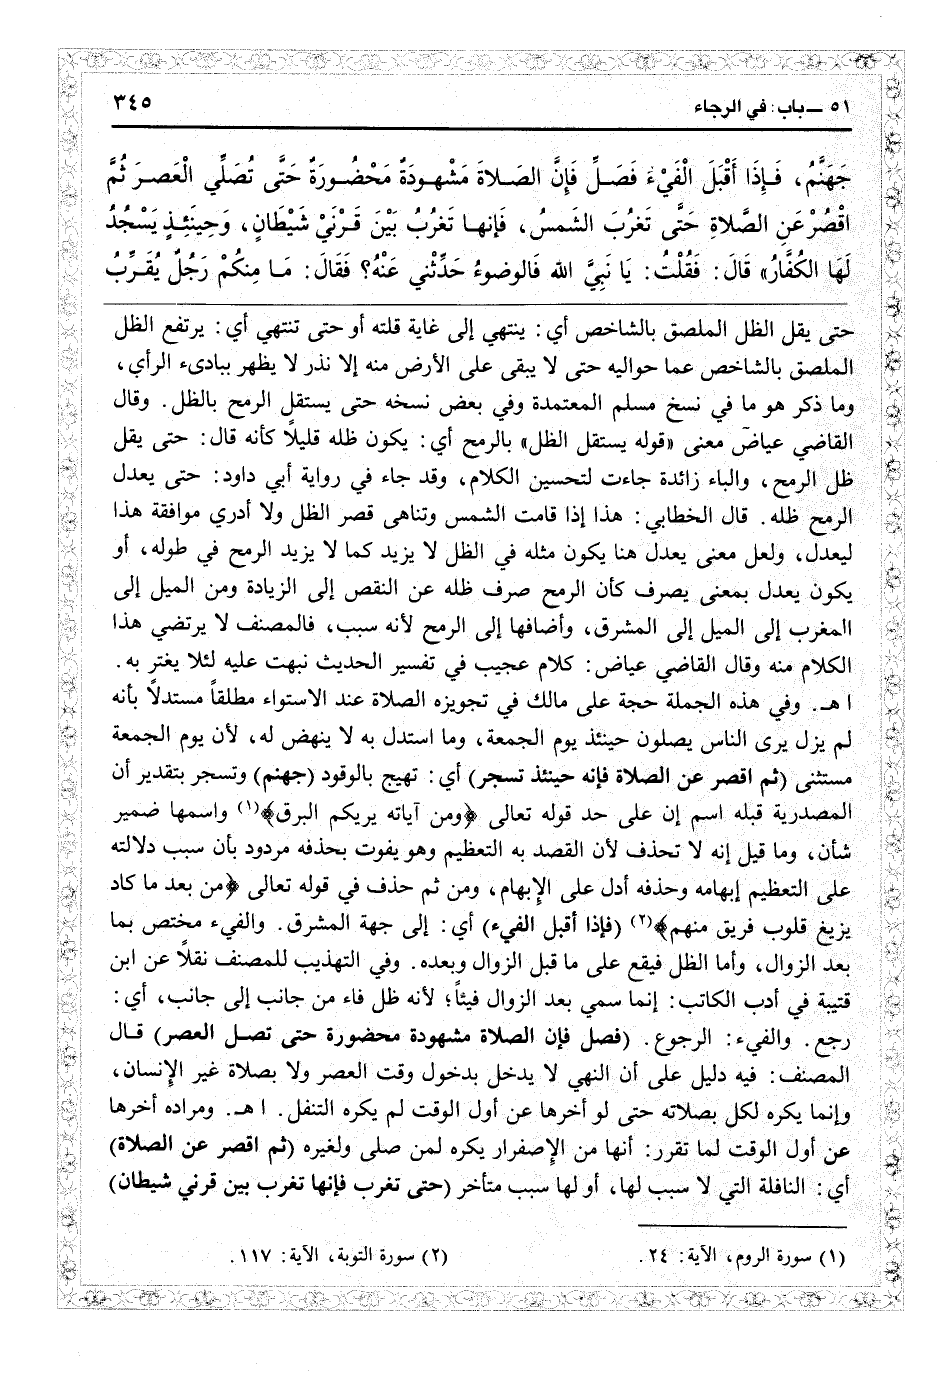 ٥١ ــ باب: في الرجاء ٣٤٥
جَهَنَّمُ، فَإِذَا أَقْبَلَ الْفَيْءُ فَصَلِّ فَإِنَّ الصَلاةَ مَشْهودَةٌ مَحْضُورَةٌ حَتَّى تُصَلِّي الْعَصرَ ثُمَّ
اقْصُرْ عَنِ الصَّلاةِ حَتَّى تَغرُبَ الشَمسُ، فَإنها تَغرُبُ بَيْنَ قَرْنَيْ شَيْطَانٍ، وَحِينَئِذٍ يَسْجُدُ
لَهَا الكُفَّارُ» قَالَ: فَقُلْتُ: يَا نَبِيَّ الله فَالوضوءُ حَدِّثْني عَنْهُ؟ فَقَالَ: مَا مِنكُمْ رَجُلٌ يُقَرِّبُ
حتى يقل الظل الملصق بالشاخص أي: ينتهي إلى غاية قلته أو حتى تنتهي أي: يرتفع الظل
الملصق بالشاخص عما حواليه حتى لا يبقى على الأرض منه إلا نذر لا يظهر ببادىء الرأي،
وما ذكر هو ما في نسخ مسلم المعتمدة وفي بعض نسخه حتى يستقل الرمح بالظل. وقال
القاضي عياض معنى «قوله يستقل الظل» بالرمح أي: يكون ظله قليلاً كأنه قال: حتى يقل
ظل الرمح، والباء زائدة جاءت لتحسين الكلام، وقد جاء في رواية أبي داود: حتى يعدل
الرمح ظله. قال الخطابي: هذا إذا قامت الشمس وتناهى قصر الظل ولا أدري موافقة هذا
ليعدل، ولعل معنى يعدل هنا يكون مثله في الظل لا يزيد كما لا يزيد الرمح في طوله، أو
يكون يعدل بمعنى يصرف كأن الرمح صرف ظله عن النقص إلى الزيادة ومن الميل إلى
المغرب إلى الميل إلى المشرق، وأضافها إلى الرمح لأنه سبب، فالمصنف لا يرتضي هذا
الكلام منه وقال القاضي عياض: كلام عجيب في تفسير الحديث نبهت عليه لئلا يغتر به.
ا هـ. وفي هذه الجملة حجة على مالك في تجويزه الصلاة عند الاستواء مطلقاً مستدلاً بأنه
لم يزل يرى الناس يصلون حينئذ يوم الجمعة، وما استدل به لا ينهض له، لأن يوم الجمعة
مستثنى (ثم اقصر عن الصلاة فإنه حينئذ تسجر) أي: تهيج بالوقود (جهنم) وتسجر بتقدير أن
المصدرية قبله اسم إن على حد قوله تعالى ﴿ومن آياته يريكم البرق﴾(١) واسمها ضمير
شأن، وما قيل إنه لا تحذف لأن القصد به التعظيم وهو يفوت بحذفه مردود بأن سبب دلالته
على التعظيم إبهامه وحذفه أدل على الإبهام، ومن ثم حذف في قوله تعالى ﴿من بعد ما كاد
يزيغ قلوب فريق منهم﴾(٢) (فإذا أقبل الفيء) أي: إلى جهة المشرق. والفيء مختص بما
بعد الزوال، وأما الظل فيقع على ما قبل الزوال وبعده. وفي التهذيب للمصنف نقلاً عن ابن
قتيبة في أدب الكاتب: إنما سمي بعد الزوال فيئاً؛ لأنه ظل فاء من جانب إلى جانب، أي:
رجع. والفيء: الرجوع. (فصل فإن الصلاة مشهودة محضورة حتى تصل العصر) قال
المصنف: فيه دليل على أن النهي لا يدخل بدخول وقت العصر ولا بصلاة غير الإنسان،
وإنما يكره لكل بصلاته حتى لو أخرها عن أول الوقت لم يكره التنفل. ا هـ. ومراده أخرها
عن أول الوقت لما تقرر: أنها من الإصفرار يكره لمن صلى ولغيره (ثم اقصر عن الصلاة)
أي: النافلة التي لا سبب لها، أو لها سبب متأخر (حتى تغرب فإنها تغرب بين قرني شيطان)
(١) سورة الروم، الآية: ٢٤. (٢) سورة التوبة، الآية: ١١٧.